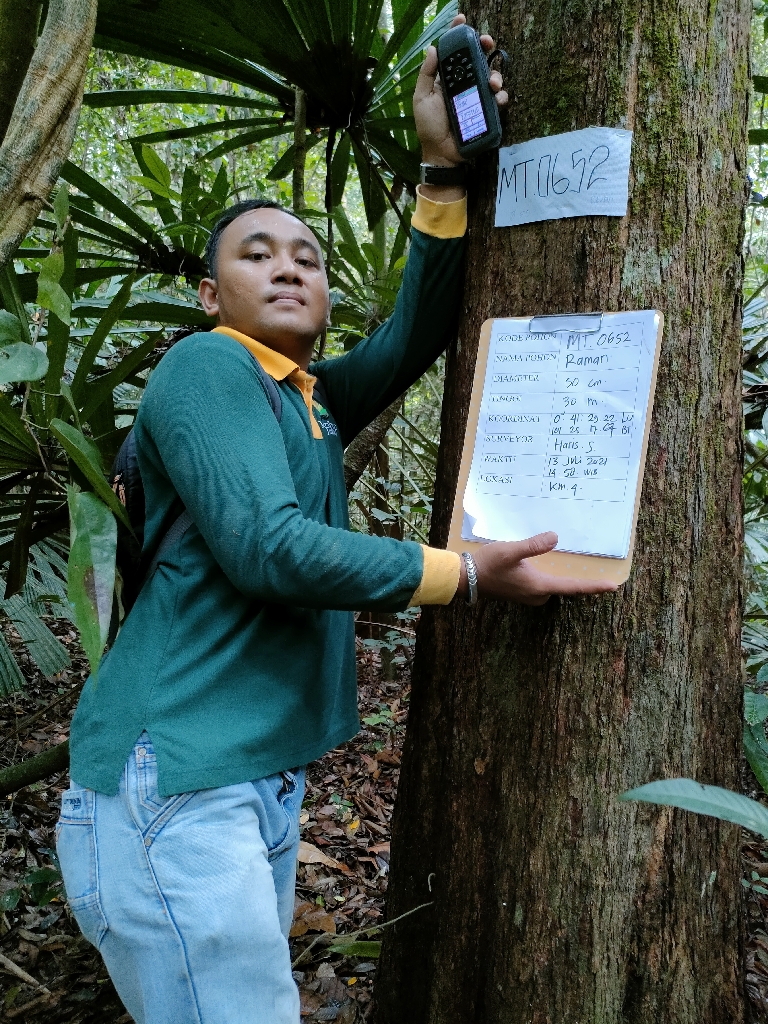 MT.0652
KODE POHON MT. 0652
NAMA POHON Raman
DIAMETER 50 cm
30 m
KOORDINAT 0° 41 29 22 LU
101 25 17 67 BT
SURVEYOR Haris. S
WAKTU 13 Juli 2021
14 50 WIB
LOKASI KM. 4